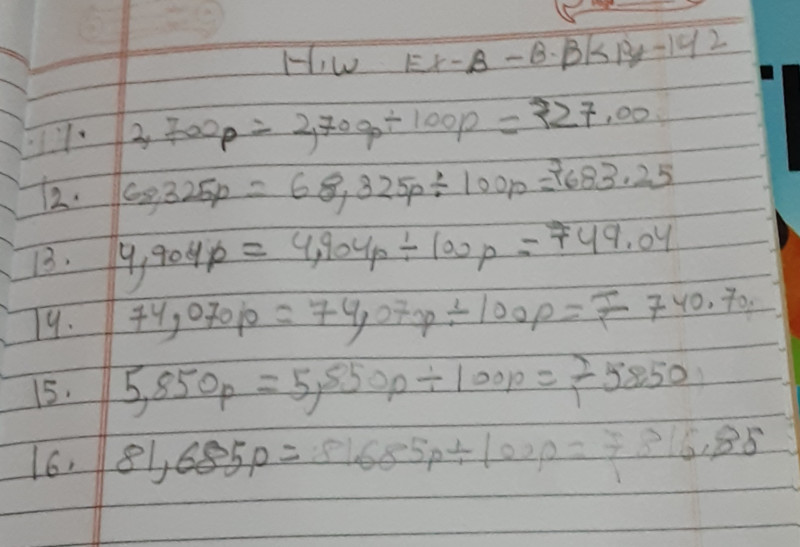 H.W Ex-B - B.B.K Pg-142
11. 2,700p = 2,700p ÷ 100p = ₹27.00
12. 68,325p = 68,325p ÷ 100p = ₹683.25
13. 4,904p = 4,904p ÷ 100p = ₹49.04
14. 74,070p = 74,070p ÷ 100p = ₹ 740.70.
15. 5,850p = 5,850p ÷ 100p = ₹ 58.50
16. 81,685p = 81685p ÷ 100p = ₹ 816.85